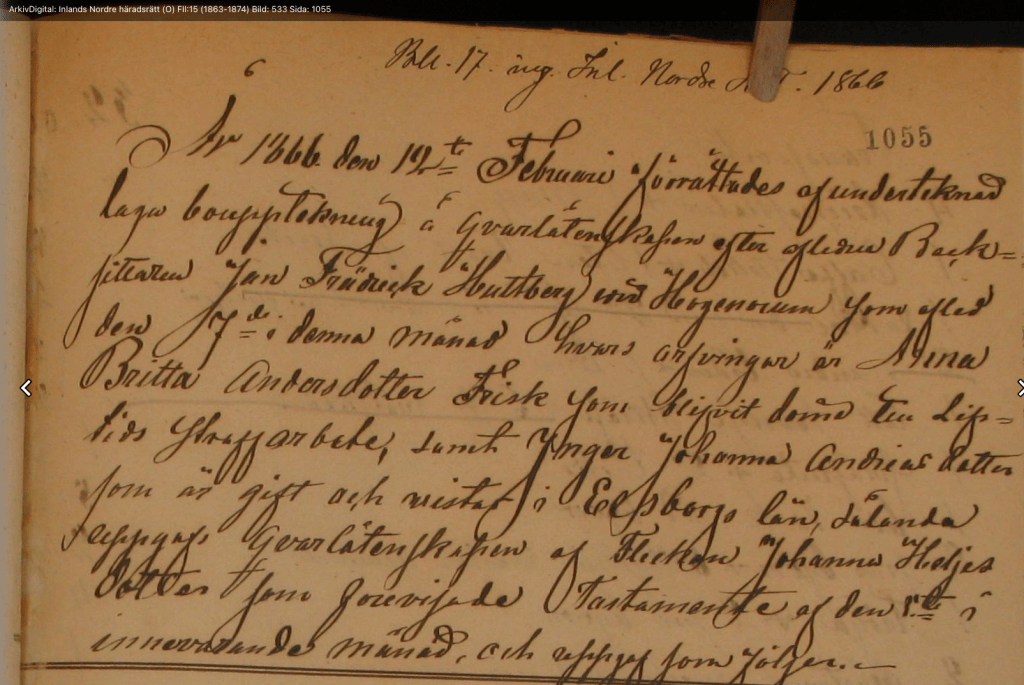 ArkivDigital: Inlands Nordre häradsrätt (O) Fil:15 (1863-1874) Bild: 533 Sida: 1055
6
Bil. 17. ing. Inl. Nordre T. 1866
1055
År 1866 den 12te Februari förrättades af underteknad
laga bouppteknung å qvarlåtenskapen efter aflidne Back=
sittaren Jan Frädrick Huttberg wid Hogenorum som afled
den 7de i denna månad hvars arfvingar är Anna
Britta Andersdotter Frisk som blifvit dömd till Lifs=
tids straffarbete, samt Inger Johanna Andreas dotter
som är gift och vistas i Elfsborgs län, sålunda
uppgafs qvarlåtenskapen af Flickan Johanna Heljes
dotter som förevisade Tastamente af den 5te i
innevarande månad, och uppgaf som följer.